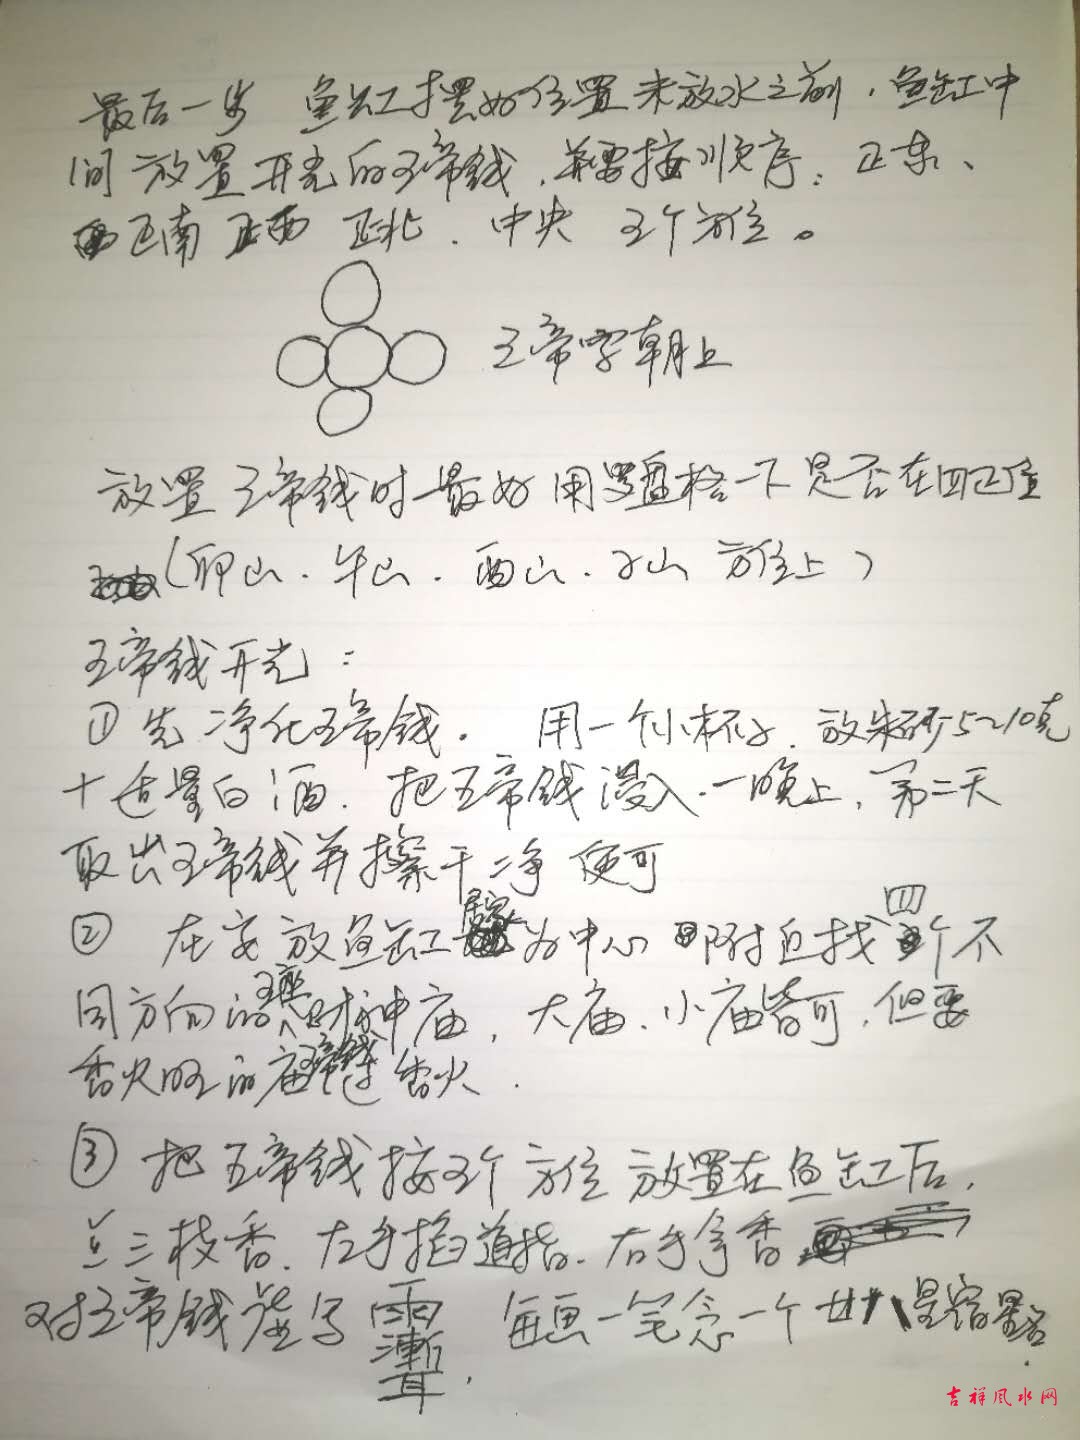 最后一步 鱼缸摆好位置未放水之前，鱼缸中
间放置开光的五帝钱，并要按顺序：正东、
正南 正西 正北、中央 五个方位。
五帝字朝上
放置五帝钱时最好用罗盘格一下是否在四正位
(卯山、午山、酉山、子山 方位上)
五帝钱开光：
① 先净化五帝钱。 用一个小杯子，放朱砂5~10克
+适量白酒，把五帝钱浸入一晚上，第二天
取出五帝钱并擦干净便可
② 在安放鱼缸 为中心 附近找四个不
同方向的财神庙，大庙、小庙皆可，但要
香火旺的庙五帝钱过香火．
③ 把五帝钱按五个方位放置在鱼缸后，
点三枝香，左手掐道指，右手拿香
对五帝钱虚写 每画一笔念一个廿八星宿星名．
吉祥风水网